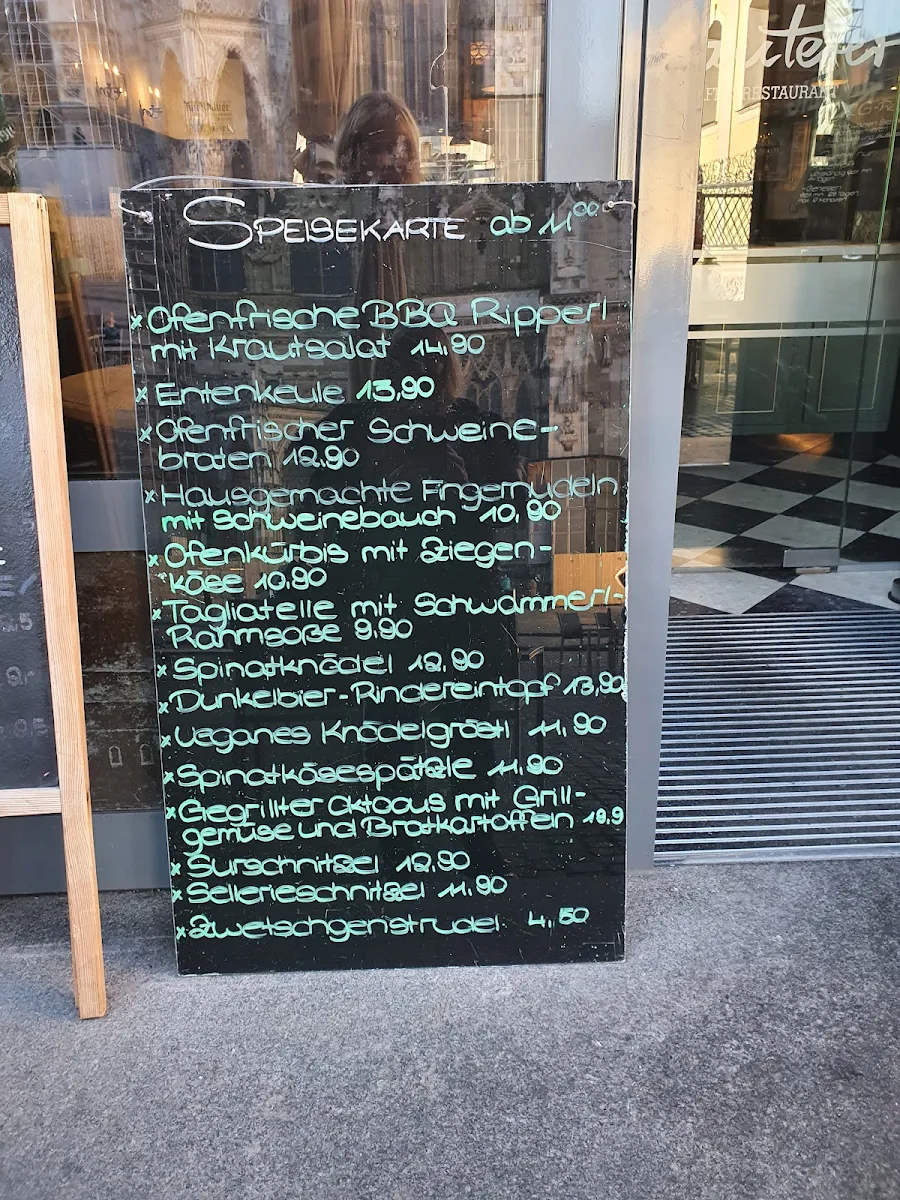 SPEISEKARTE ab 11⁰⁰
x Ofenfrische BBQ Ripperl
mit Krautsalat 14,90
x Entenkeule 13,90
x Ofenfrischer Schweine-
braten 12,90
x Hausgemachte Fingernudeln
mit Schweinebauch 10,90
x Ofenkürbis mit Ziegen-
käse 10,90
x Tagliatelle mit Schwammerl-
Rahmsoße 9,90
x Spinatknödel 12,90
x Dunkelbier-Rindereintopf 13,90
x Veganes Knödelgröstl 11,90
x Spinatkäsespätzle 11,90
x Gegrillter Oktopus mit Grill-
gemüse und Bratkartoffeln 19,9
x Surschnitzel 12,90
x Sellerieschnitzel 11,90
x Zwetschgenstrudel 4,50
RESTAURANT